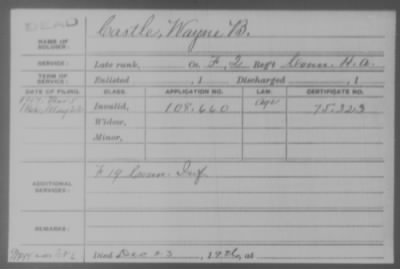 DEAD
NAME OF SOLDIER: Castle, Wayne B.
SERVICE: Late rank, Co. F, 2 Reg't Conn. H.A.
TERM OF SERVICE: Enlisted , 1 Discharged , 1
DATE OF FILING. CLASS. APPLICATION NO. LAW. CERTIFICATE NO.
Invalid, 108.660 Age 75.323
Widow,
Minor,
ADDITIONAL SERVICES: F 19 Conn. Inf.
REMARKS:
Died Dec 23, 19 , at